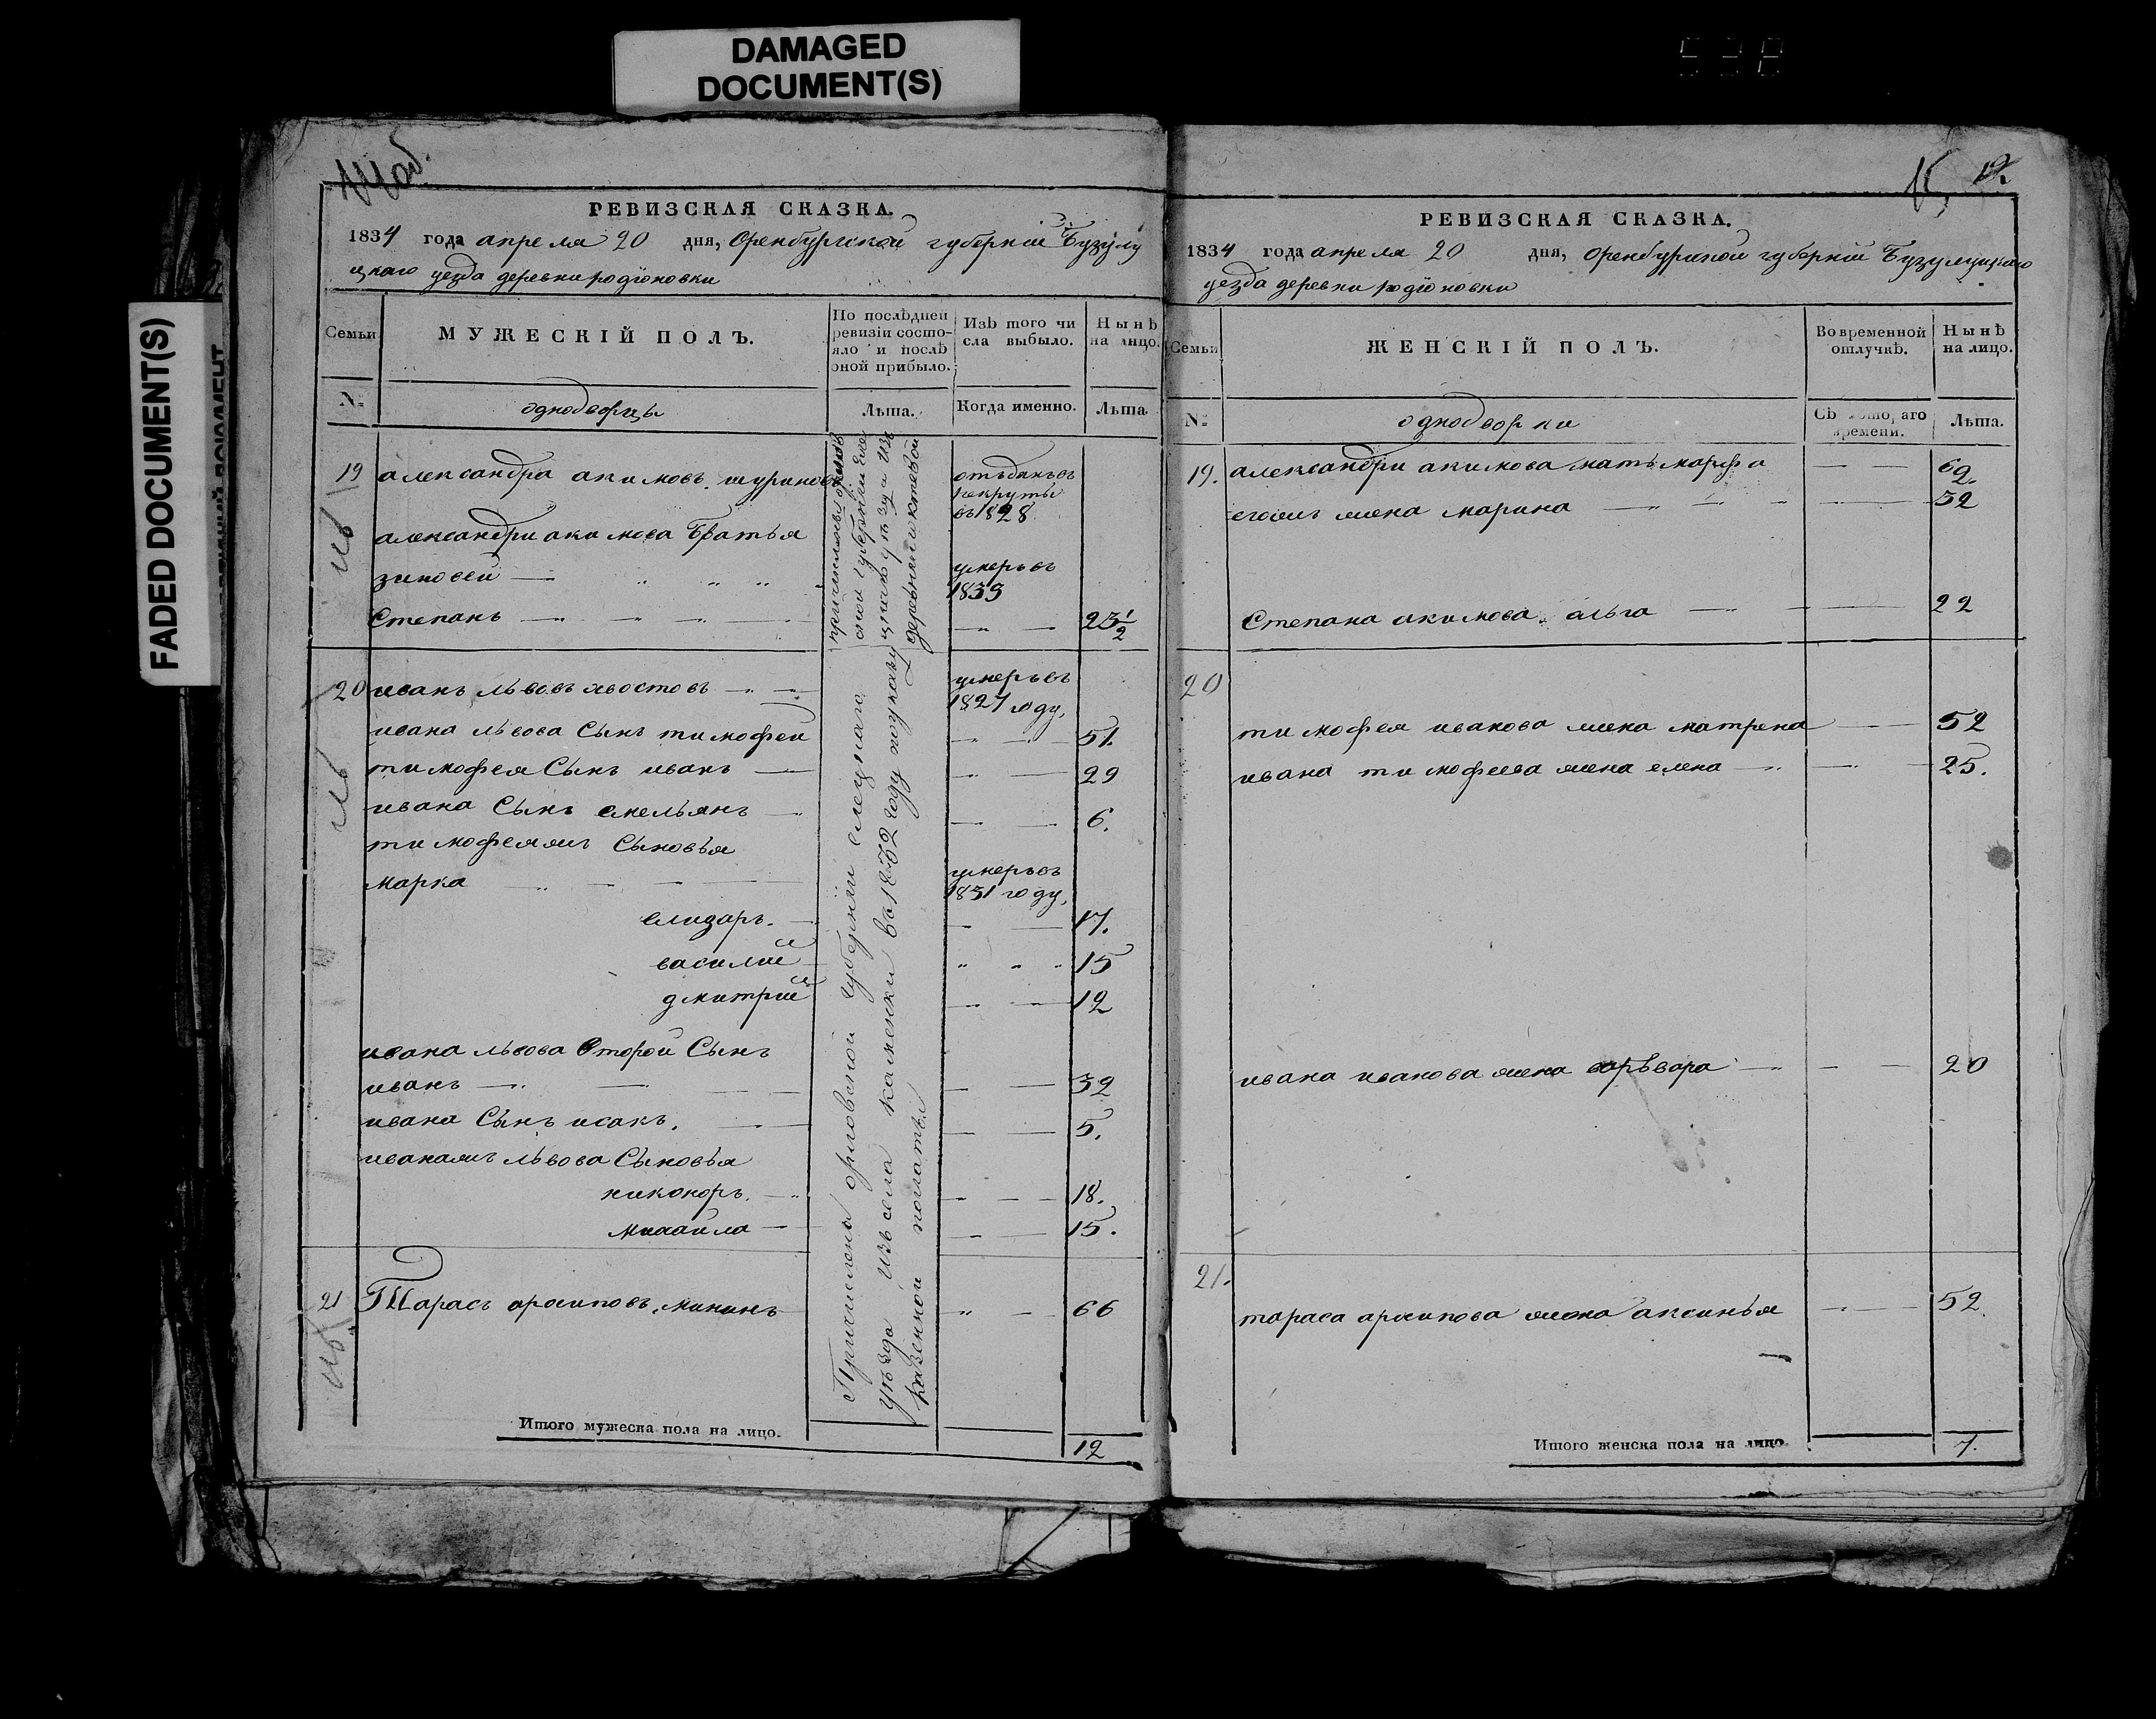 DAMAGED
DOCUMENT(S)
FADED DOCUMENT(S)
14 об.
РЕВИЗСКАЯ СКАЗКА.
1834 года апреля 20 дня, Оренбургской губернїи Бузулу
цкаго уезда деревни родїоновки
Семьи
МУЖЕСКІЙ ПОЛЪ.
По послѣдней
ревизіи состо-
яло и послѣ
оной прибыло.
Изъ того чи
сла выбыло.
Нынѣ
на лицо.
№
однодворцы
Лѣта.
Когда именно.
Лѣта.
19 александра акимовъ
отъданъ въ
рекруты
въ 1828
александры акимова братья
зиновей
умеръ въ
1833
Степанъ 23½
20 иванъ львовъ хвостовъ
умеръ въ
1827 году,
ивана львова Сынъ тимофей 51.
тимофея Сынъ иванъ 29
ивана Сынъ емельянъ 6.
тимофеяжъ Сыновья
Марка
умеръ въ
1831 году,
елизаръ. 17.
василий 15
дмитрий 12
ивана львова Второй Сынъ
иванъ 32
ивана Сынъ исакъ. 5.
иванажъ львова Сыновья
никоноръ. 18.
михайла 15.
21 Тарасъ архиповъ, мининъ 66
Причислены орловской губернїи елецкаго
уѣзда изъ села каменки въ 1832 году по указу
казенной палаты
Итого мужеска пола на лицо. 12
15,
РЕВИЗСКАЯ СКАЗКА.
1834 года апреля 20 дня, оренбургской губернїи Бузулуцкаго
уезда деревни родїоновки
Семьи
ЖЕНСКІЙ ПОЛЪ.
Во временной
отлучкѣ.
Нынѣ
на лицо.
№
однодворки
Съ котораго
времени.
Лѣта.
19. александры акимова мать марфа 62.
егожъ жена марина 32
Степана акимова ольга 22
20
тимофея иванова жена матрена 52
ивана тимофеева жена елена 25.
ивана иванова жена варъвара 20
21.
тараса архипова жена аксинья 52.
Итого женска пола на лицо 7.